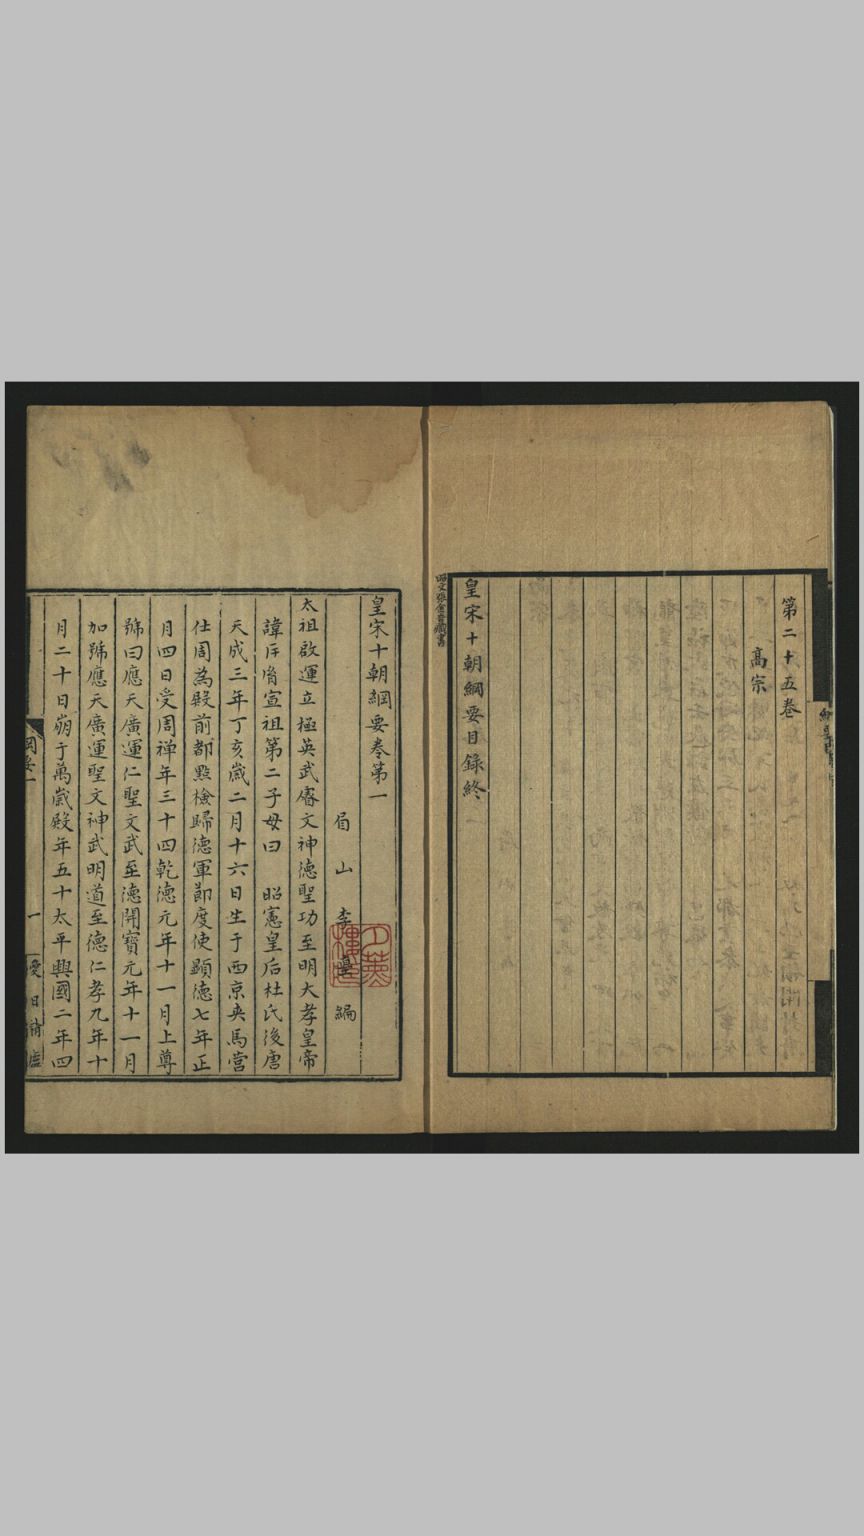 第二十五卷
高宗
皇宋十朝綱要目錄終
昭文張金吾藏書
皇宋十朝綱要卷第一
眉山 李 編
太祖啟運立極英武睿文神德聖功至明大孝皇帝
諱 宣祖第二子母曰 昭憲皇后杜氏後唐
天成三年丁亥歲二月十六日生于西京夾馬營
仕周為殿前都㸃檢歸德軍節度使顯德七年正
月四日受周禅年三十四乾德元年十一月上尊
號曰應天廣運仁聖文武至德開寶元年十一月
加號應天廣運聖文神武明道至德仁孝九年十
月二十日崩于萬歲殿年五十太平興國二年四
綱要一
一
愛日精廬